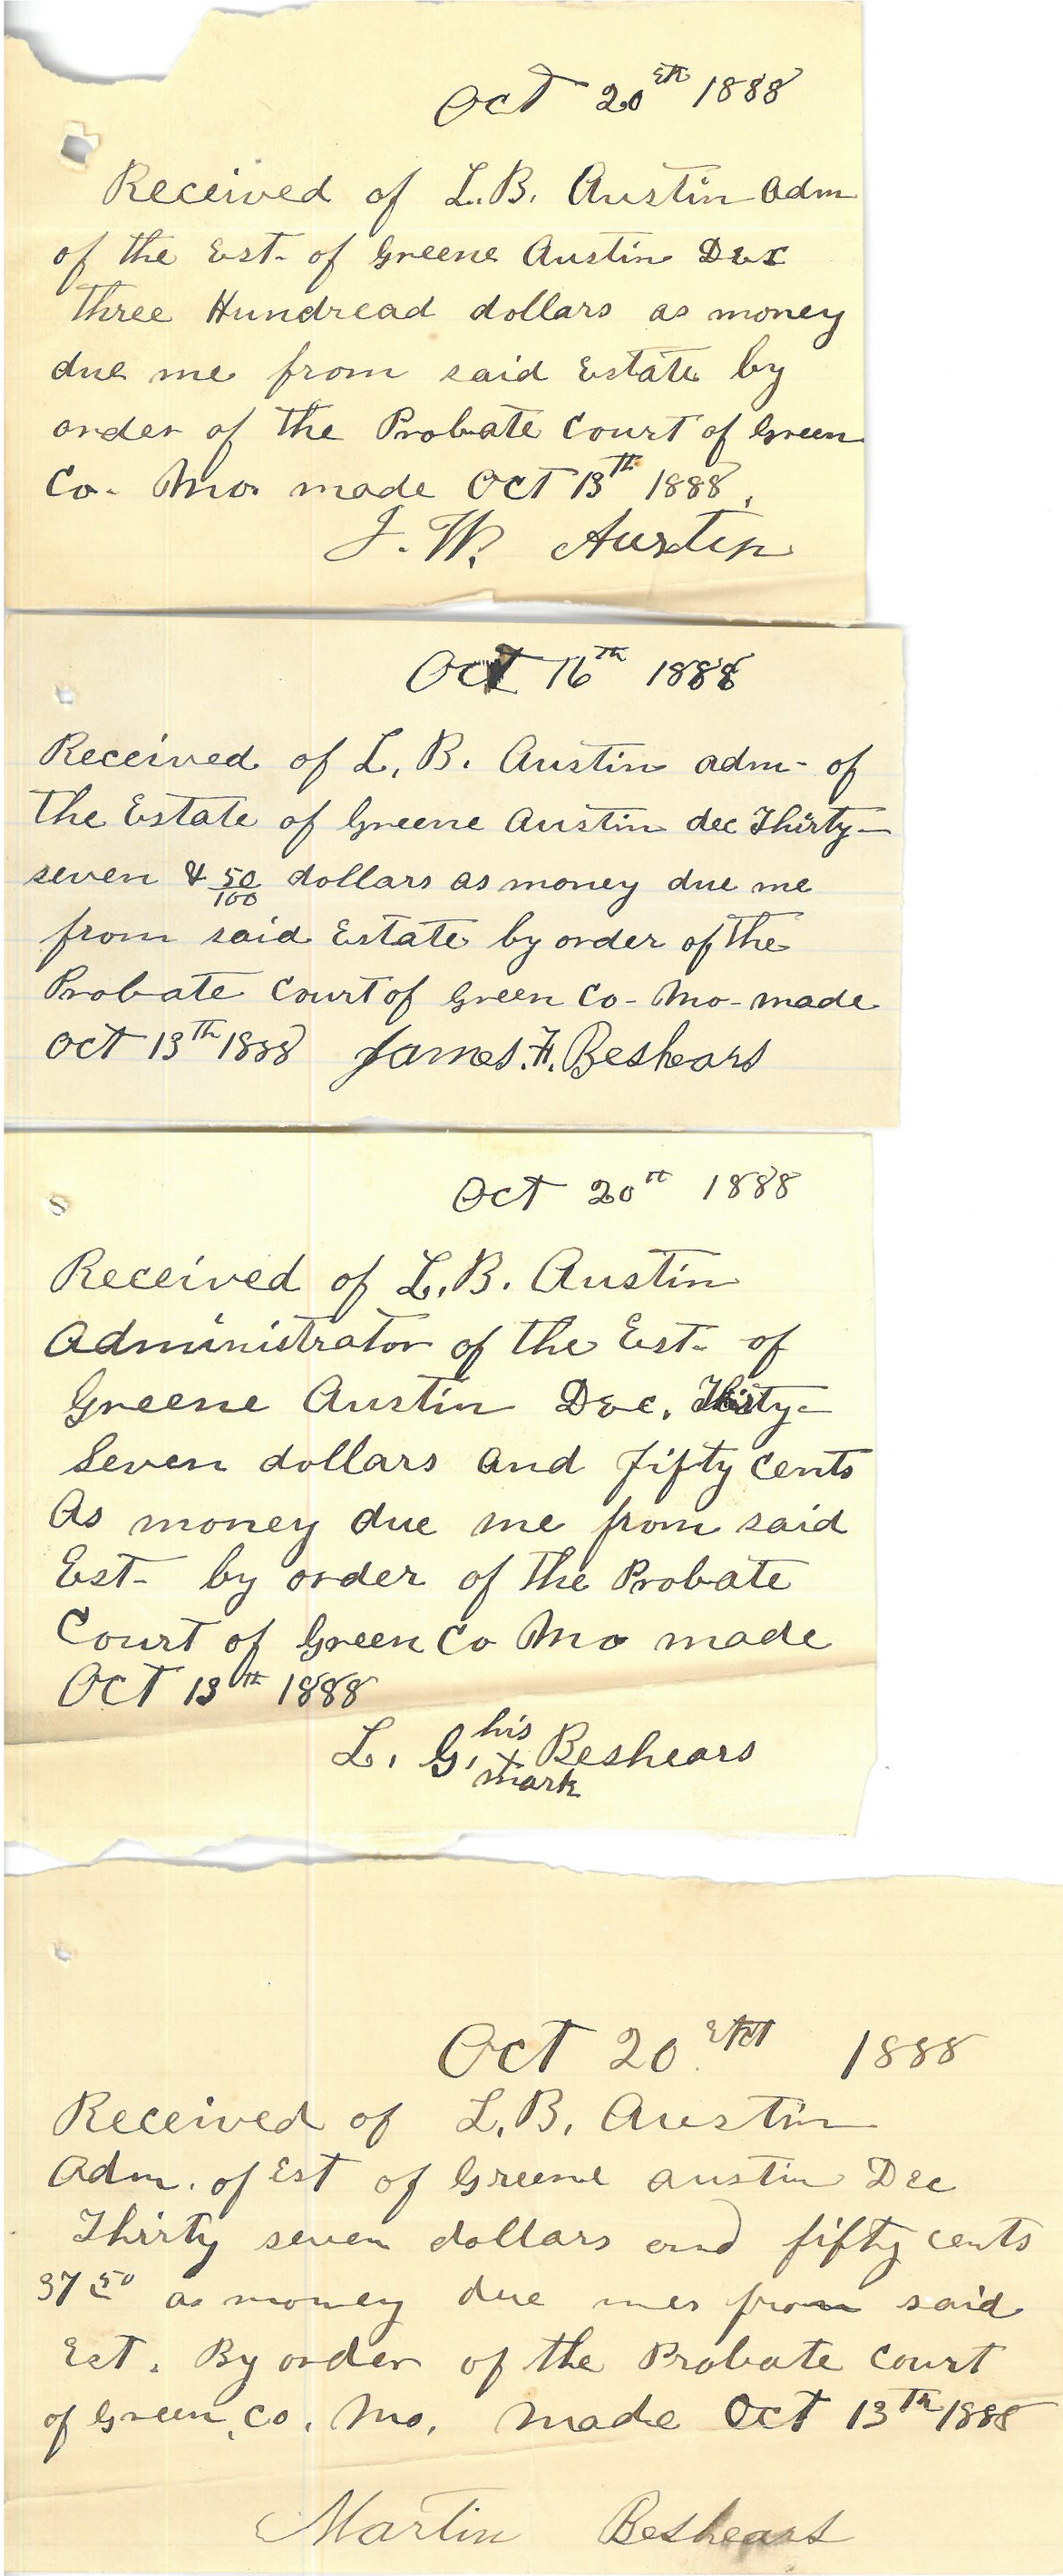 Oct 20th 1888
Received of L.B. Austin Adm
of the Est- of Greene Austin Dec
three Hundread dollars as money
due me from said Estate by
order of the Probate Court of Green
Co- Mo. made Oct 13th 1888.
J. W. Austin
Oct 16th 1888
Received of L, B. Austin adm- of
the Estate of Greene Austin dec Thirty-
seven & 50/100 dollars as money due me
from said Estate by order of the
Probate Court of Green Co- Mo- made
Oct 13th 1888 James. F. Beshears
Oct 20th 1888
Received of L.B. Austin
Administrator of the Est- of
Greene Austin Dec. Thirty-
Seven dollars and fifty cents
As money due me from said
Est- by order of the Probate
Court of Green Co Mo made
Oct 13th 1888
L. G. his x mark Beshears
Oct 20th 1888
Received of L.B. Austin
Adm. of Est of Greene Austin Dec
Thirty seven dollars and fifty cents
37 50 as money due me from said
Est. By order of the Probate Court
of Green, Co. Mo. made Oct 13th 1888
Martin Beshears